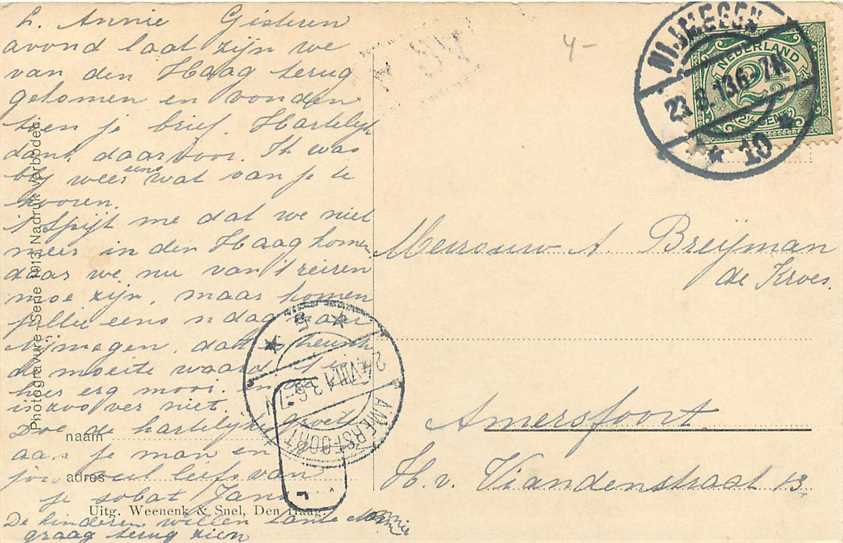 L. Annie Gisteren
avond laat zijn we
van den Haag terug
gekomen en vonden
toen je brief. Hartelijk
dank daarvoor. Ik was
blij weer eens wat van je te
hooren.
't Spijt me dat we niet
meer in den Haag komen
daar we nu van 't reizen
moe zijn, maar komen
jullie eens 'n dag naar
Nijmegen, dat is heusch
de moeite waard 't is
hier erg mooi en
is zoo ver niet.
Doe de hartelijke groet
aan je man en
veel liefs van
je
De kinderen willen tante Annie
graag terug zien
Photogravure, Serie Nadruk verboden.
naam
adres
Uitg. Weenenk & Snel, Den Haag.
NIJMEGEN
23.8.13.6-7N
10
NEDERLAND
2½
CENT
4-
Mevrouw A. Breijman
de Kroes.
Amersfoort
H. v. Viandenstraat 13
AMERSFOORT
24.VIII.13.6-7V